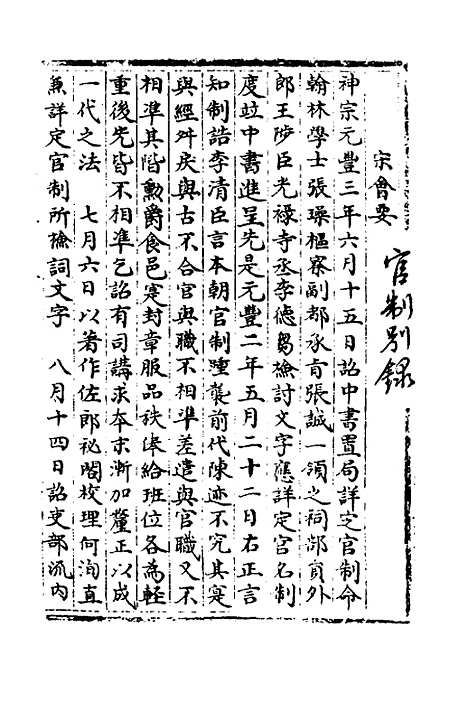 宋會要
官制別錄
神宗元豐三年六月十五日詔中書置局詳定官制命
翰林學士張璪樞宻副都承㫖張誠一領之祠部員外
郎王陟臣光禄寺丞李徳芻檢討文字應詳定官名制
度竝中書進呈先是元豐二年五月二十二日右正言
知制誥李清臣言本朝官制踵襲前代陳迹不究其寔
與經舛戾與古不合官與職不相準差遣與官職又不
相準其階勲爵食邑寔封章服品秩俸給班位各為輕
重後先皆不相準乞詔有司講求本末漸加釐正以成
一代之法　七月六日以著作佐郎祕閣校理何洵直
兼詳定官制所檢詞文字　八月十四日詔吏部流内